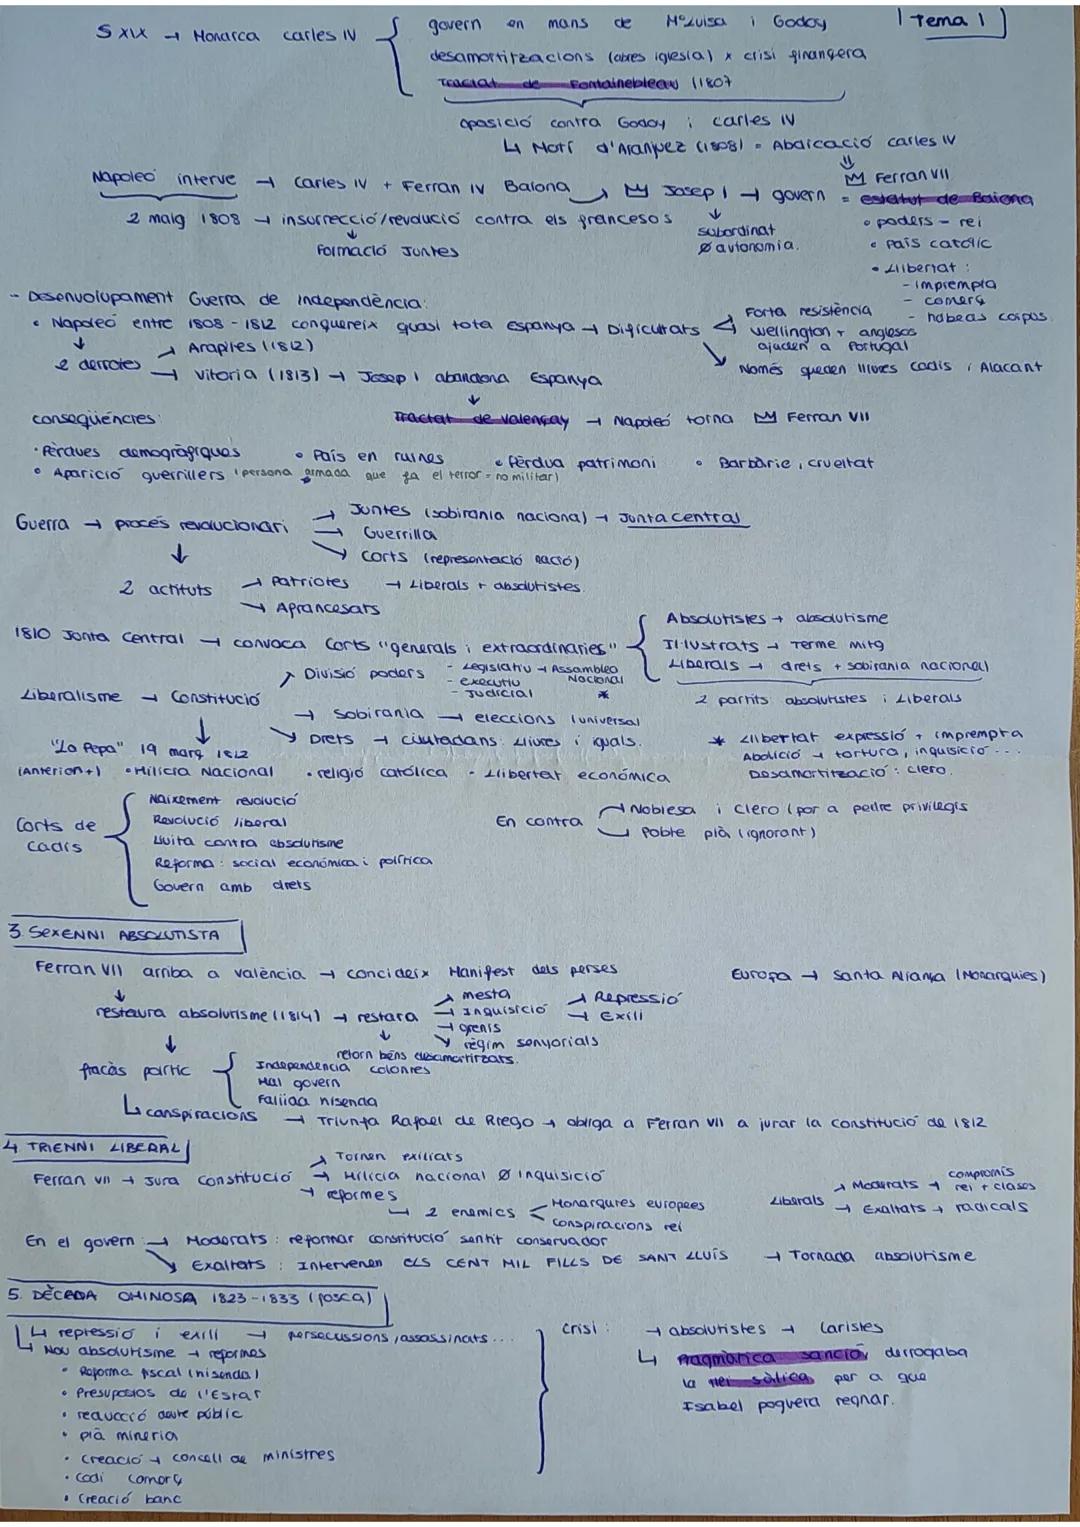 Tema 1
S XIX → Monarca Carles IV
govern en mans de Mª Luisa i Godoy
desamortitzacions (obres iglesia) x crisi finançera
Tractat de Fontainebleau (1807
oposició contra Godoy i Carles IV
↳ Motí d'Aranjuez (1808) = Abdicació Carles IV
Ferran VII
Napoleó interve → Carles IV + Ferran IV Baiona → Josep I → govern = estatut de Baiona
subordinat
Ø autonomia.
• poders - rei
• País catòlic
• Llibertat :
- imprempta
- comerç
- habeas corpus
2 maig 1808 → insurrecció/revolució contra els francesos
Formació Juntes
- Desenvolupament Guerra de independència:
• Napoleó entre 1808 - 1812 conquereix quasi tota Espanya → Dificultats
Forta resistència
Wellington + anglesos
ajuden a Portugal
Només queden lliures Cadis i Alacant
2 derrotes
→ Arapiles (1812)
→ Vitoria (1813) → Josep I abandona Espanya
Tractat de Valençay → Napoleó torna Ferran VII
conseqüències:
• Pèrdues demogràfiques • País en ruines • Pèrdua patrimoni • Barbàrie, crueltat
• Aparició guerrillers (persona armada que fa el terror = no militar)
Guerra → procés revolucionari
→ Juntes (sobirania nacional) → Junta Central
→ Guerrilla
→ Corts (representació nació)
2 actituts
→ Patriotes → Liberals + absolutistes.
→ Afrancesats
1810 Junta Central → convoca Corts "generals i extraordinaries"
Absolutistes → absolutisme
Il·lustrats → Terme mitg
Liberals → drets + sobirania nacional
2 partits absolutistes i Liberals
Liberalisme → Constitució
→ Divisió poders
- Legislatiu → Assamblea Nacional
- executiu
- Judicial *
→ Sobirania → eleccions (universal
→ Drets → ciutadans: lliures i iguals.
* Llibertat expressió + imprempta
Abolició → tortura, inquisició...
Desamortització: clero.
"La Pepa" 19 març 1812
(Anterior+) • Milicia Nacional • religió catòlica • Llibertat econòmica
Corts de Cadis
Naixement revolució
Revolució liberal
Lluita contra absolutisme
Reforma: social econòmica i política
Govern amb drets
En contra
→ Noblesa i clero (por a pedre privilegis
→ Poble pla (ignorant)
3. SEXENNI ABSOLUTISTA
Ferran VII arriba a València → concideix Manifest dels perses
Europa → Santa Aliança (Monarquies)
restaura absolutisme (1814) → restara
→ mesta
→ Inquisició
→ gremis
→ règim senyorials
→ Repressió
→ Exili
retorn béns desamortitzats.
fracàs polític
Independencia colonies
Mal govern
Fallida hisenda
↳ conspiracions → Triunfa Rafael de Riego → obliga a Ferran VII a jurar la constitució de 1812
4 TRIENNI LIBERAL
Ferran VII → Jura constitució
→ Tornen exiliats
→ Milicia nacional Ø inquisició
→ reformes
↳ 2 enemics
Monarquies europees
conspiracions rei
Liberals
→ Moderats → compromís rei + clases
→ Exaltats → radicals
En el govern → Moderats: reformar constitució sentit conservador
→ Exaltats : Intervenen ELS CENT MIL FILLS DE SANT LLUÍS → Tornada absolutisme
5. DÈCADA OMINOSA 1823-1833 (fosca)
↳ repressió i exili → persecussions, assassinats...
↳ Nou absolutisme → reformes
• Reforma fiscal (hisenda)
• Presupostos de l'Estat
• reducció deute públic
• plà mineria
• creació → concell de ministres
• Codi comerç
• Creació banc
crisi :
→ absolutistes → Carlistes
↳ Pragmàtica sanció, derrogaba
la llei sàlica per a que
Isabel poguera regnar.